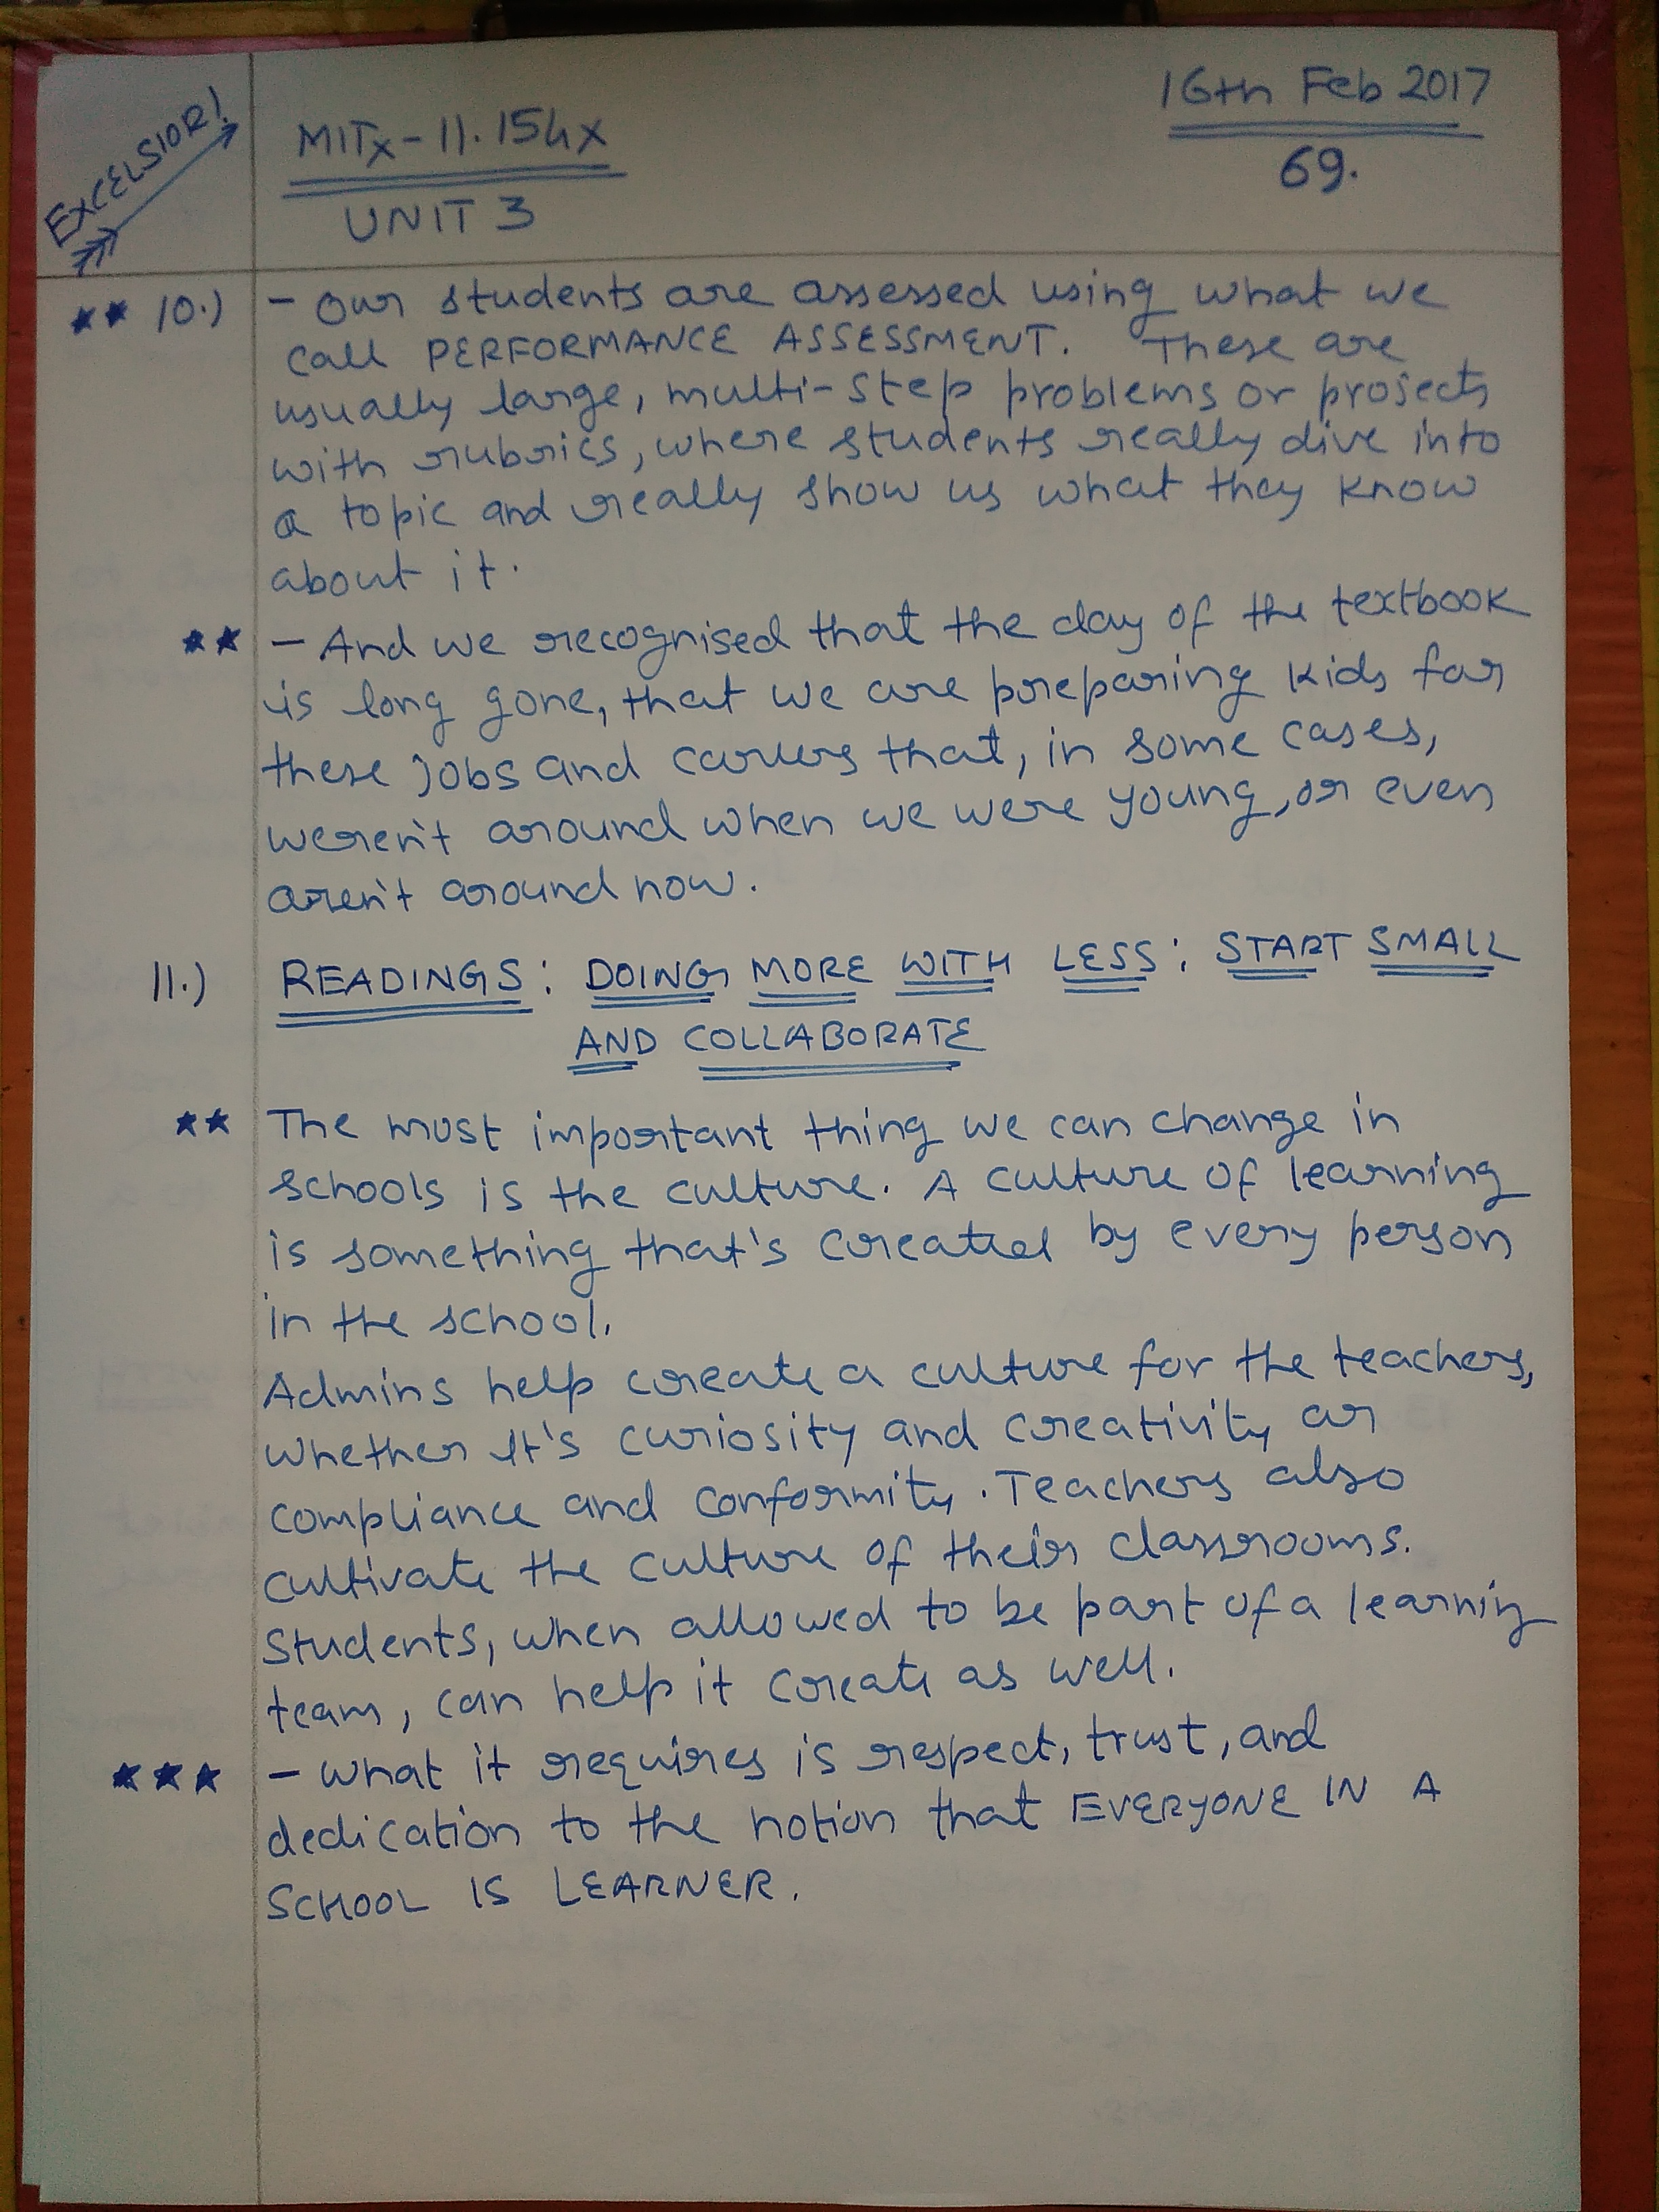 EXCELSIOR!
MITx-11.154x
UNIT 3
16th Feb 2017
69.
★★ 10.) - Our students are assessed using what we
call PERFORMANCE ASSESSMENT. These are
usually large, multi-step problems or projects
with rubrics, where students really dive into
a topic and really show us what they know
about it.
★★ - And we recognised that the day of the textbook
is long gone, that we are preparing kids for
these jobs and careers that, in some cases,
weren't around when we were young, or even
aren't around now.
11.) READINGS: DOING MORE WITH LESS: START SMALL
AND COLLABORATE
★★ The most important thing we can change in
schools is the culture. A culture of learning
is something that's created by every person
in the school.
Admins help create a culture for the teachers,
whether it's curiosity and creativity or
compliance and conformity. Teachers also
cultivate the culture of their classrooms.
Students, when allowed to be part of a learning
team, can help it create as well.
★★★ - What it requires is respect, trust, and
dedication to the notion that EVERYONE IN A
SCHOOL IS LEARNER.